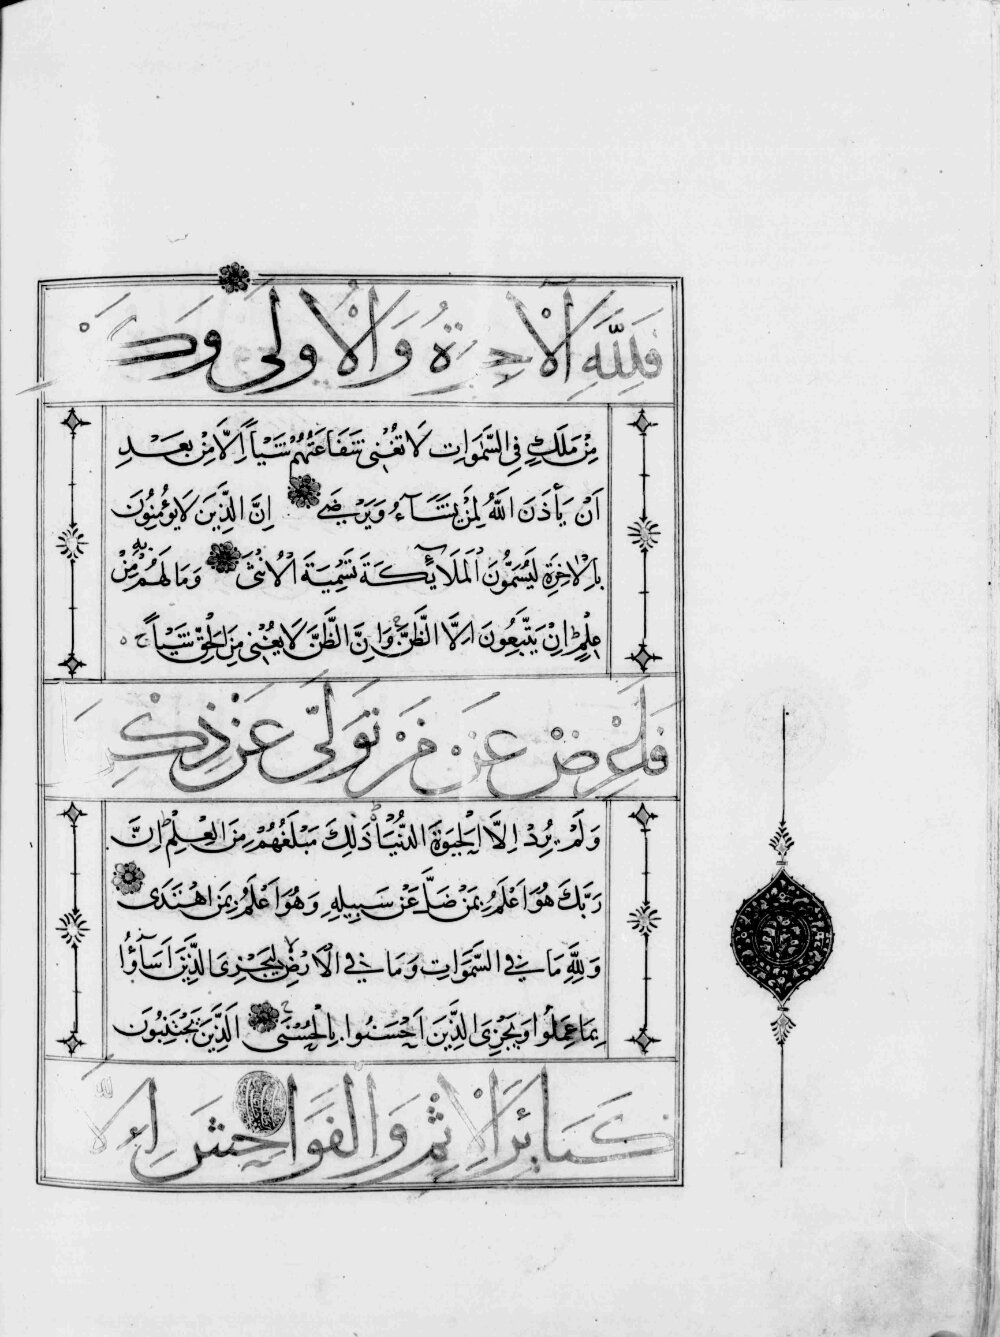 فَلِلَّهِ الْآخِرَةُ وَالْأُولَى وَكَمْ
مِنْ مَلَكٍ فِي السَّمَوَاتِ لَا تُغْنِي شَفَاعَتُهُمْ شَيْئًا إِلَّا مِنْ بَعْدِ
أَنْ يَأْذَنَ اللَّهُ لِمَنْ يَشَآءُ وَيَرْضَى إِنَّ الَّذِينَ لَا يُؤْمِنُونَ
بِالْآخِرَةِ لَيُسَمُّونَ الْمَلَائِكَةَ تَسْمِيَةَ الْأُنْثَى وَمَا لَهُمْ بِهِ مِنْ
عِلْمٍ إِنْ يَتَّبِعُونَ إِلَّا الظَّنَّ وَإِنَّ الظَّنَّ لَا يُغْنِي مِنَ الْحَقِّ شَيْئًا
فَأَعْرِضْ عَنْ مَنْ تَوَلَّى عَنْ ذِكْرِ
وَلَمْ يُرِدْ إِلَّا الْحَيَوةَ الدُّنْيَا ذَلِكَ مَبْلَغُهُمْ مِنَ الْعِلْمِ إِنَّ
رَبَّكَ هُوَ أَعْلَمُ بِمَنْ ضَلَّ عَنْ سَبِيلِهِ وَهُوَ أَعْلَمُ بِمَنِ اهْتَدَى
وَلِلَّهِ مَا فِي السَّمَوَاتِ وَمَا فِي الْأَرْضِ لِيَجْزِيَ الَّذِينَ أَسَآؤُا
بِمَا عَمِلُوا وَيَجْزِيَ الَّذِينَ أَحْسَنُوا بِالْحُسْنَى الَّذِينَ يَجْتَنِبُونَ
كَبَائِرَ الْإِثْمِ وَالْفَوَاحِشَ إِلَّا